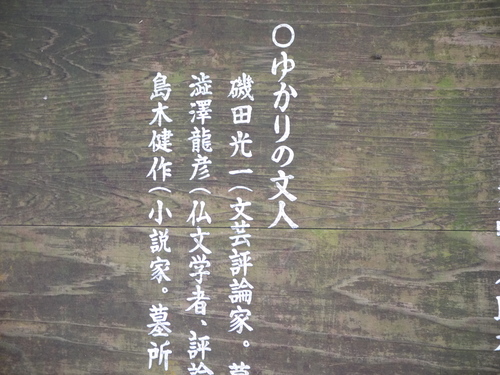 〇ゆかりの文人
磯田光一(文芸評論家。墓
澁澤龍彦(仏文学者、評論
島木健作(小説家。墓所